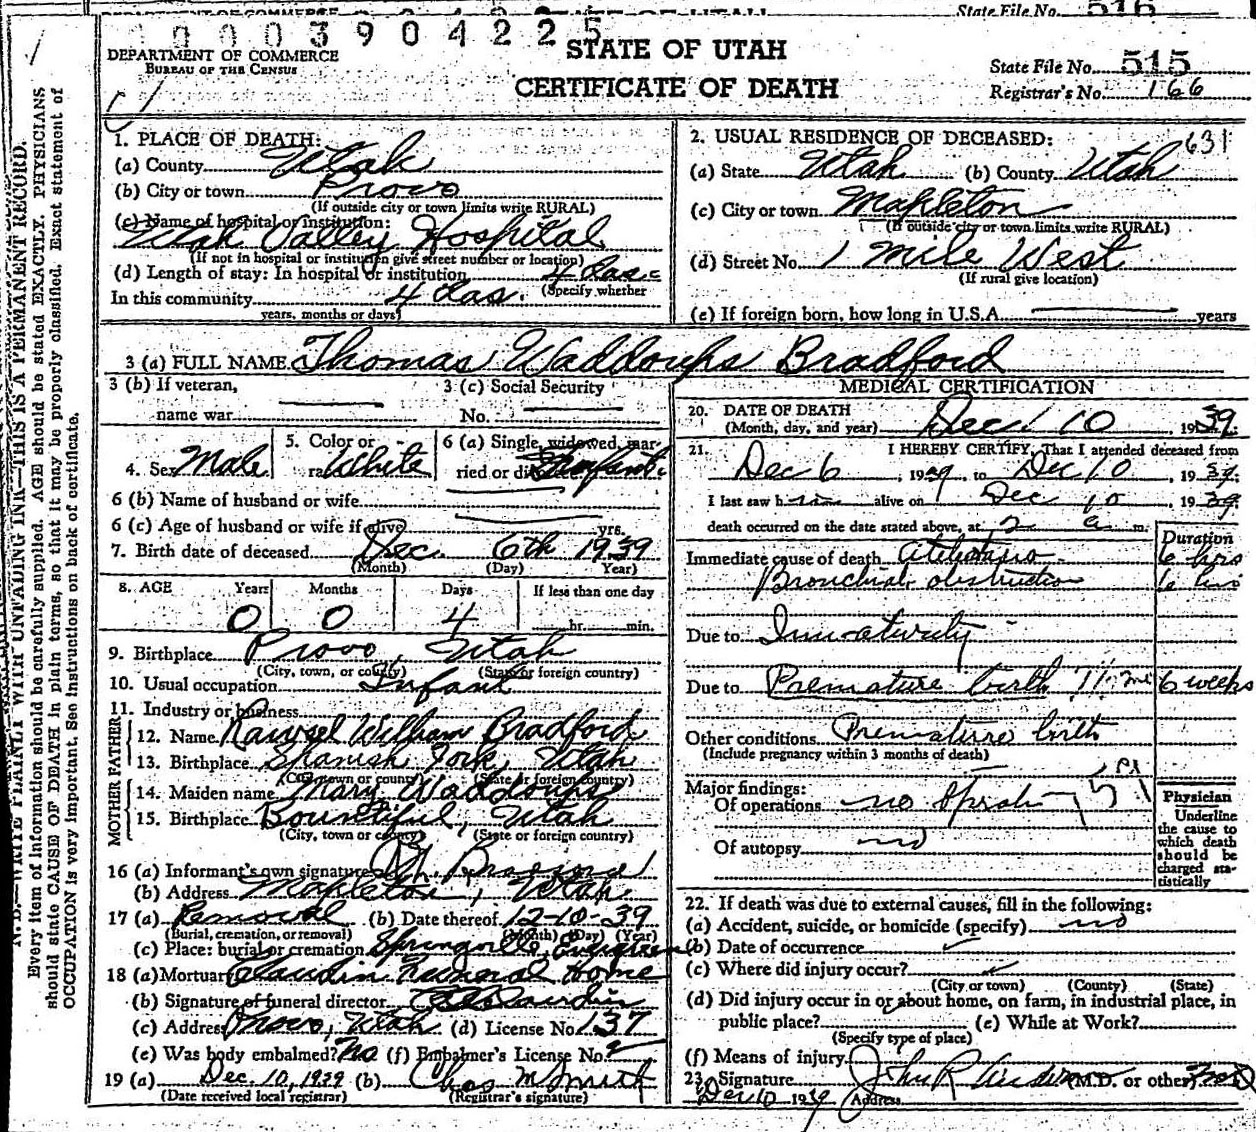 DEPARTMENT OF COMMERCE STATE OF UTAH State File No. 516
0 0 0 0 3 9 0 4 2 2 5
DEPARTMENT OF COMMERCE
BUREAU OF THE CENSUS
STATE OF UTAH
CERTIFICATE OF DEATH
State File No. 515
Registrar's No. 166
N. B.—WRITE PLAINLY WITH UNFADING INK—THIS IS A PERMANENT RECORD.
Every item of information should be carefully supplied. AGE should be stated EXACTLY. PHYSICIANS
should state CAUSE OF DEATH in plain terms, so that it may be properly classified. Exact statement of
OCCUPATION is very important. See instructions on back of certificate.
1. PLACE OF DEATH:
(a) County Utah
(b) City or town Provo
(If outside city or town limits write RURAL)
(c) Name of hospital or institution:
Utah Valley Hospital
(If not in hospital or institution give street number or location)
(d) Length of stay: In hospital or institution 4 das.
(Specify whether
In this community 4 das.
years, months or days)
2. USUAL RESIDENCE OF DECEASED: 631
(a) State Utah (b) County Utah
(c) City or town Mapleton
(If outside city or town limits write RURAL)
(d) Street No. 1 Mile West
(If rural give location)
(e) If foreign born, how long in U.S.A. years
3 (a) FULL NAME Thomas Waddoups Bradford
3 (b) If veteran,
name war
3 (c) Social Security
No.
4. Sex Male
5. Color or
race White
6 (a) Single, widowed, mar-
ried or divorced Infant
6 (b) Name of husband or wife
6 (c) Age of husband or wife if alive yrs.
7. Birth date of deceased Dec. 6th 1939
(Month) (Day) Year)
8. AGE Years Months Days If less than one day
0 0 4 hr. min.
9. Birthplace Provo, Utah
(City, town, or county) (State or foreign country)
10. Usual occupation Infant
11. Industry or business
FATHER
12. Name Rawsel William Bradford
13. Birthplace Spanish Fork, Utah
(City, town or county) (State or foreign country)
MOTHER
14. Maiden name Mary Waddoups
15. Birthplace Bountiful, Utah
(City, town or county) (State or foreign country)
16 (a) Informant's own signature
(b) Address Mapleton, Utah
17 (a) Removal (b) Date thereof 12-10-39
(Burial, cremation, or removal) (Month) (Day) (Year)
(c) Place: burial or cremation Springville, Evergreen
18 (a) Mortuary Claudin Funeral Home
(b) Signature of funeral director
(c) Address Provo, Utah (d) License No. 137
(e) Was body embalmed? No (f) Embalmer's License No.
19 (a) Dec. 10, 1939 (b) Chas M Smith
(Date received local registrar) (Registrar's signature)
MEDICAL CERTIFICATION
20. DATE OF DEATH
(Month, day, and year) Dec. 10, 1939.
21. I HEREBY CERTIFY, That I attended deceased from
Dec 6, 1939, to Dec 10, 1939.
I last saw him alive on Dec 10, 1939.
death occurred on the date stated above, at 2 a m.
Duration
Immediate cause of death atelectasis 6 hrs
Bronchial obstruction 6 hrs
Due to Immaturity
Due to Premature birth 7½ mo 6 weeks
Other conditions Premature birth
(Include pregnancy within 3 months of death)
Major findings:
Of operations no
Of autopsy no
Physician
Underline
the cause to
which death
should be
charged sta-
tistically
22. If death was due to external causes, fill in the following:
(a) Accident, suicide, or homicide (specify) no
(b) Date of occurrence
(c) Where did injury occur?
(City or town) (County) (State)
(d) Did injury occur in or about home, on farm, in industrial place, in
public place? (e) While at Work?
(Specify type of place)
(f) Means of injury
23. Signature John R Anderson (M.D. or other)
Dec 10 1939 Address